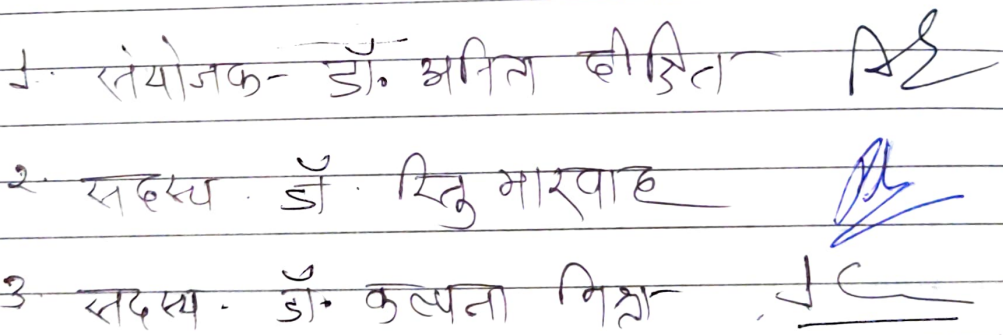 1. संयोजक - डॉ. अनिता दीक्षित
२. सदस्य . डॉ . रितु मारवाह
३. सदस्य . डॉ. कल्पना मिश्रा